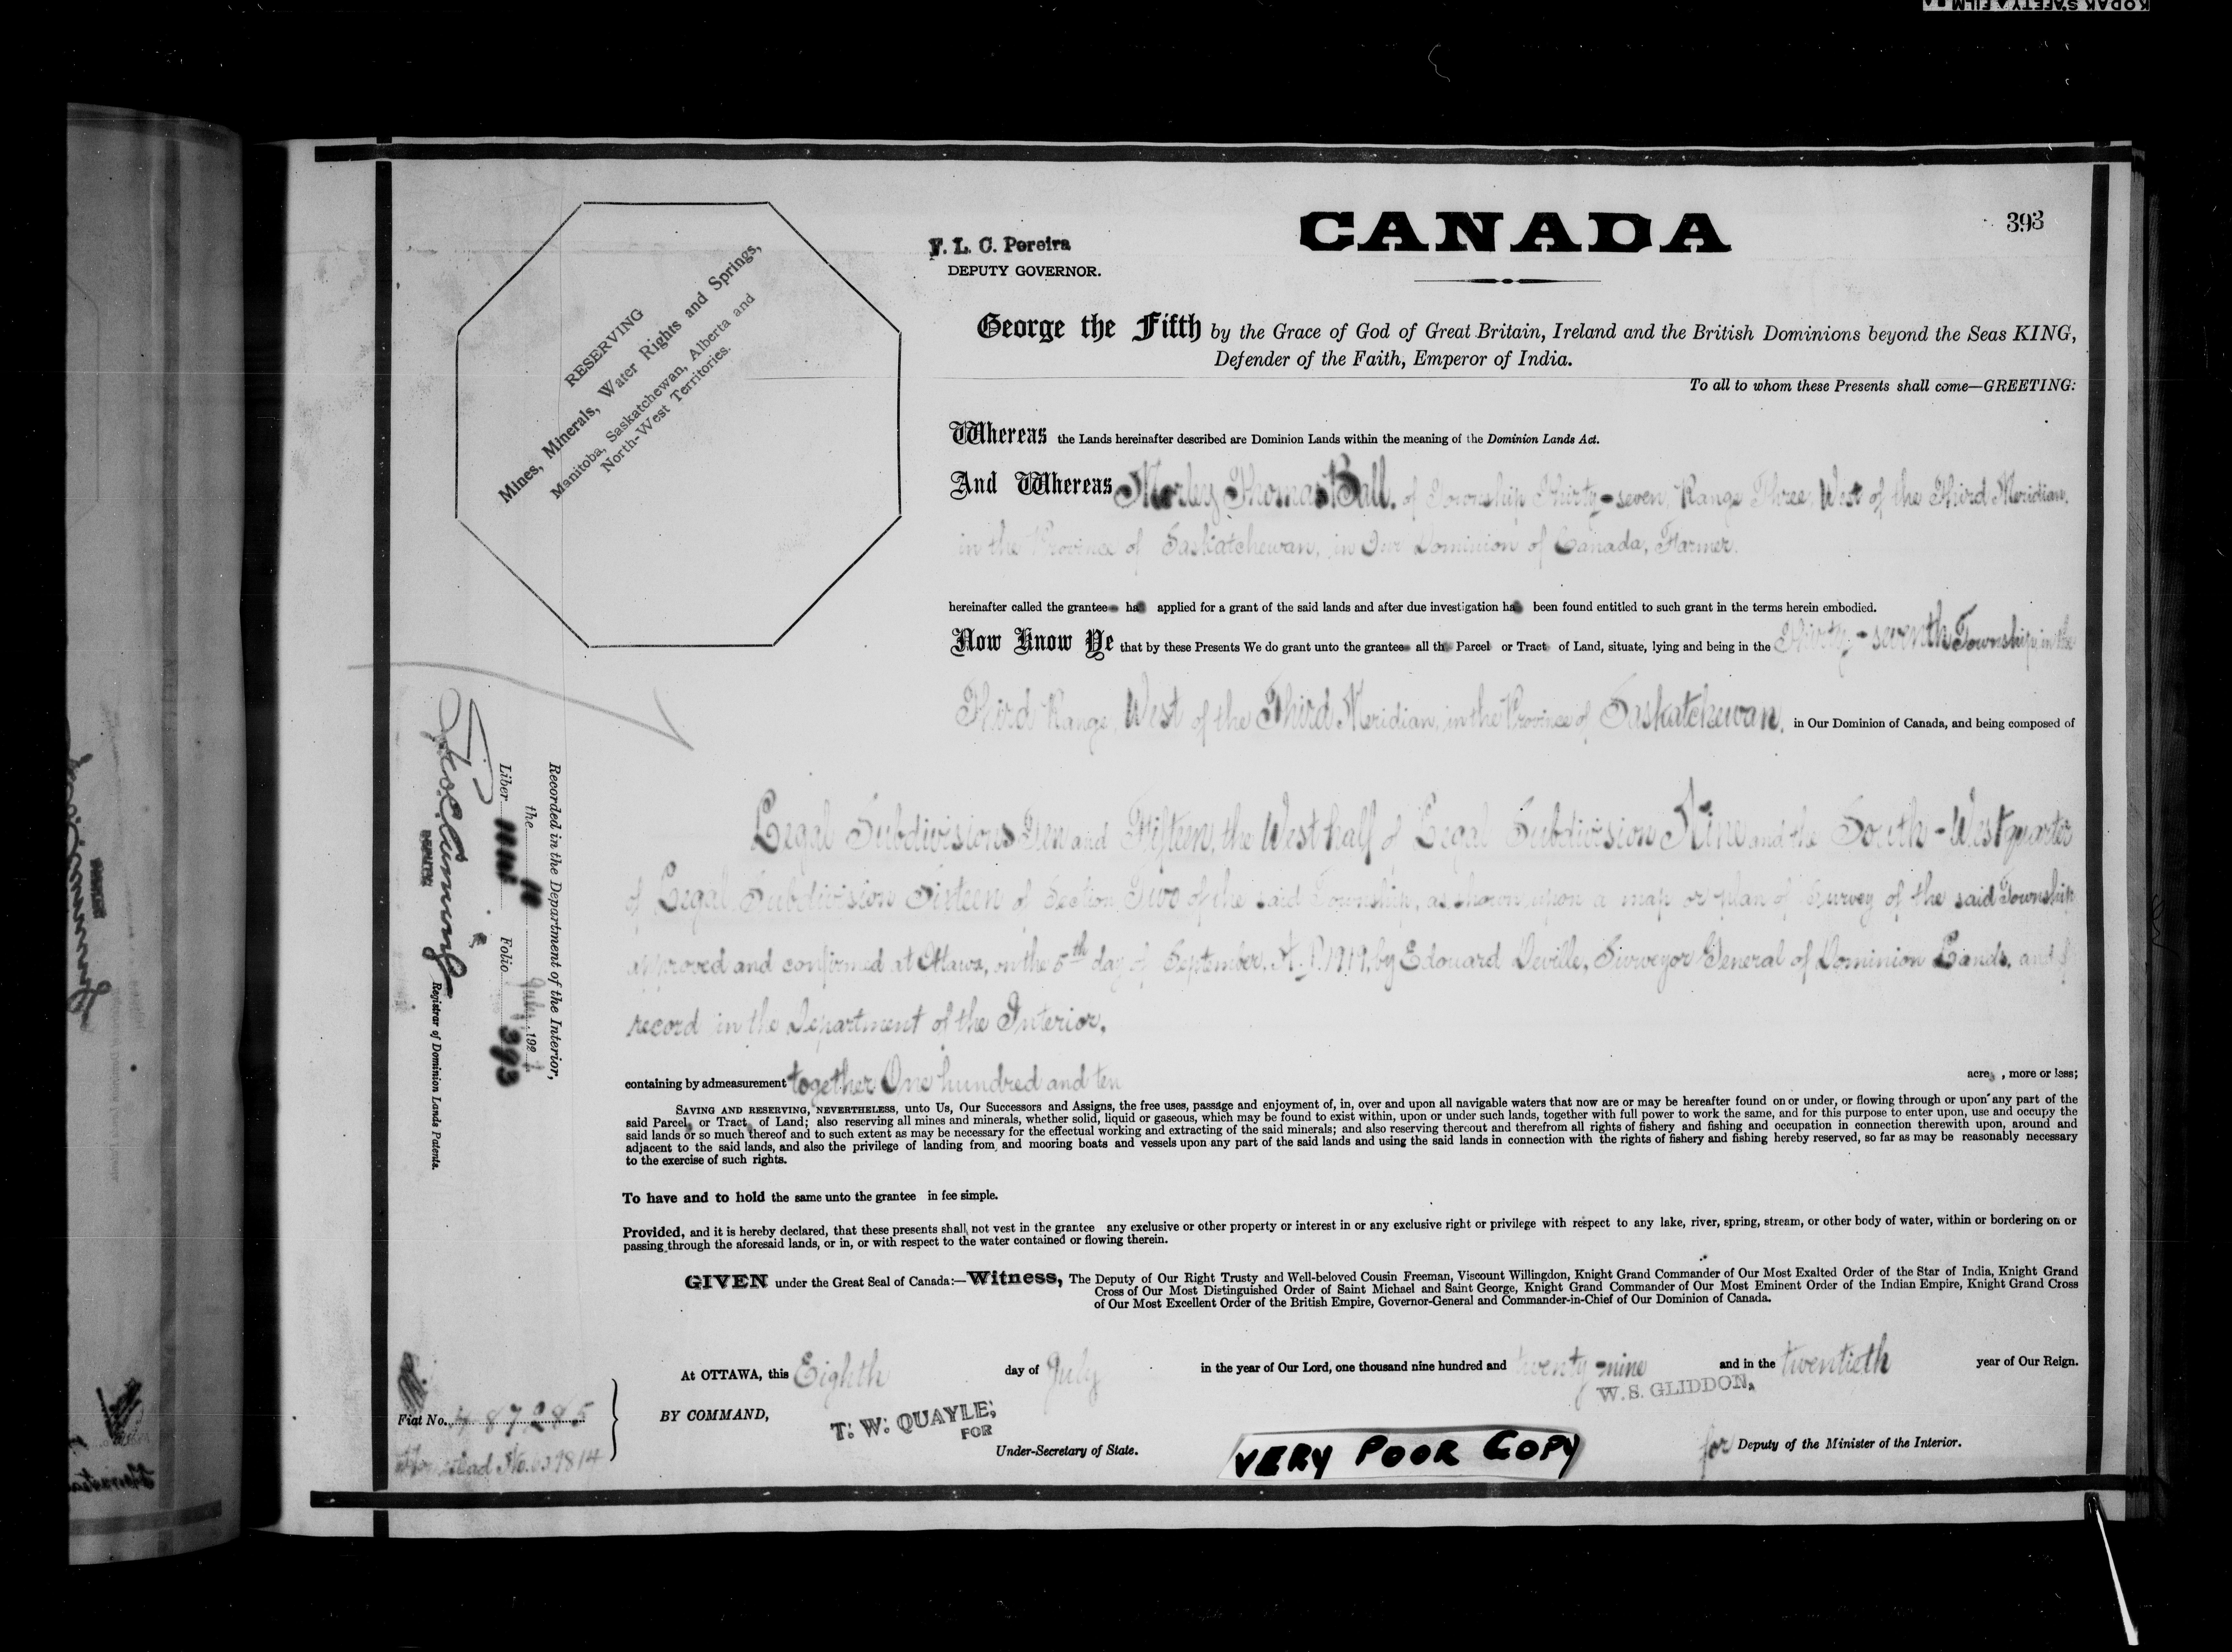 KODAK SAFETY FILM
393
CANADA
F. L. C. Pereira
DEPUTY GOVERNOR.
RESERVING
Mines, Minerals, Water Rights and Springs,
Manitoba, Saskatchewan, Alberta and
North-West Territories.
George the Fifth by the Grace of God of Great Britain, Ireland and the British Dominions beyond the Seas KING,
Defender of the Faith, Emperor of India.
To all to whom these Presents shall come—GREETING:
Whereas the Lands hereinafter described are Dominion Lands within the meaning of the Dominion Lands Act.
And Whereas Morley Thomas Ball, of Township Thirty-seven, Range Three, West of the Third Meridian,
in the Province of Saskatchewan, in Our Dominion of Canada, Farmer.
hereinafter called the grantee has applied for a grant of the said lands and after due investigation has been found entitled to such grant in the terms herein embodied.
Now Know Ye that by these Presents We do grant unto the grantee all th Parcel or Tract of Land, situate, lying and being in the Thirty-seventh Township, in the
Third Range, West of the Third Meridian, in the Province of Saskatchewan, in Our Dominion of Canada, and being composed of
Legal Subdivisions Ten and Fifteen, the West half of Legal Subdivision Nine and the South-West quarter
of Legal Subdivision Sixteen of Section Two of the said Township, as shown upon a map or plan of Survey of the said Township
approved and confirmed at Ottawa, on the 5th day of September, A.D. 1919, by Edouard Deville, Surveyor General of Dominion Lands, and of
record in the Department of the Interior.
containing by admeasurement together One hundred and ten acres, more or less;
SAVING AND RESERVING, NEVERTHELESS, unto Us, Our Successors and Assigns, the free uses, passage and enjoyment of, in, over and upon all navigable waters that now are or may be hereafter found on or under, or flowing through or upon any part of the
said Parcel or Tract of Land; also reserving all mines and minerals, whether solid, liquid or gaseous, which may be found to exist within, upon or under such lands, together with full power to work the same, and for this purpose to enter upon, use and occupy the
said lands or so much thereof and to such extent as may be necessary for the effectual working and extracting of the said minerals; and also reserving thereout and therefrom all rights of fishery and fishing and occupation in connection therewith upon, around and
adjacent to the said lands, and also the privilege of landing from and mooring boats and vessels upon any part of the said lands and using the said lands in connection with the rights of fishery and fishing hereby reserved, so far as may be reasonably necessary
to the exercise of such rights.
To have and to hold the same unto the grantee in fee simple.
Provided, and it is hereby declared, that these presents shall not vest in the grantee any exclusive or other property or interest in or any exclusive right or privilege with respect to any lake, river, spring, stream, or other body of water, within or bordering on or
passing through the aforesaid lands, or in, or with respect to the water contained or flowing therein.
GIVEN under the Great Seal of Canada:—Witness, The Deputy of Our Right Trusty and Well-beloved Cousin Freeman, Viscount Willingdon, Knight Grand Commander of Our Most Exalted Order of the Star of India, Knight Grand
Cross of Our Most Distinguished Order of Saint Michael and Saint George, Knight Grand Commander of Our Most Eminent Order of the Indian Empire, Knight Grand Cross
of Our Most Excellent Order of the British Empire, Governor-General and Commander-in-Chief of Our Dominion of Canada.
At OTTAWA, this Eighth day of July in the year of Our Lord, one thousand nine hundred and twenty-nine and in the twentieth year of Our Reign.
BY COMMAND,
T. W. QUAYLE,
FOR
Under-Secretary of State.
W. S. GLIDDON,
for Deputy of the Minister of the Interior.
VERY POOR COPY
Fiat No. 487285
Homestead No.
Recorded in the Department of the Interior,
the July 192
Liber Folio 393
DEPUTY
Registrar of Dominion Lands Patents.